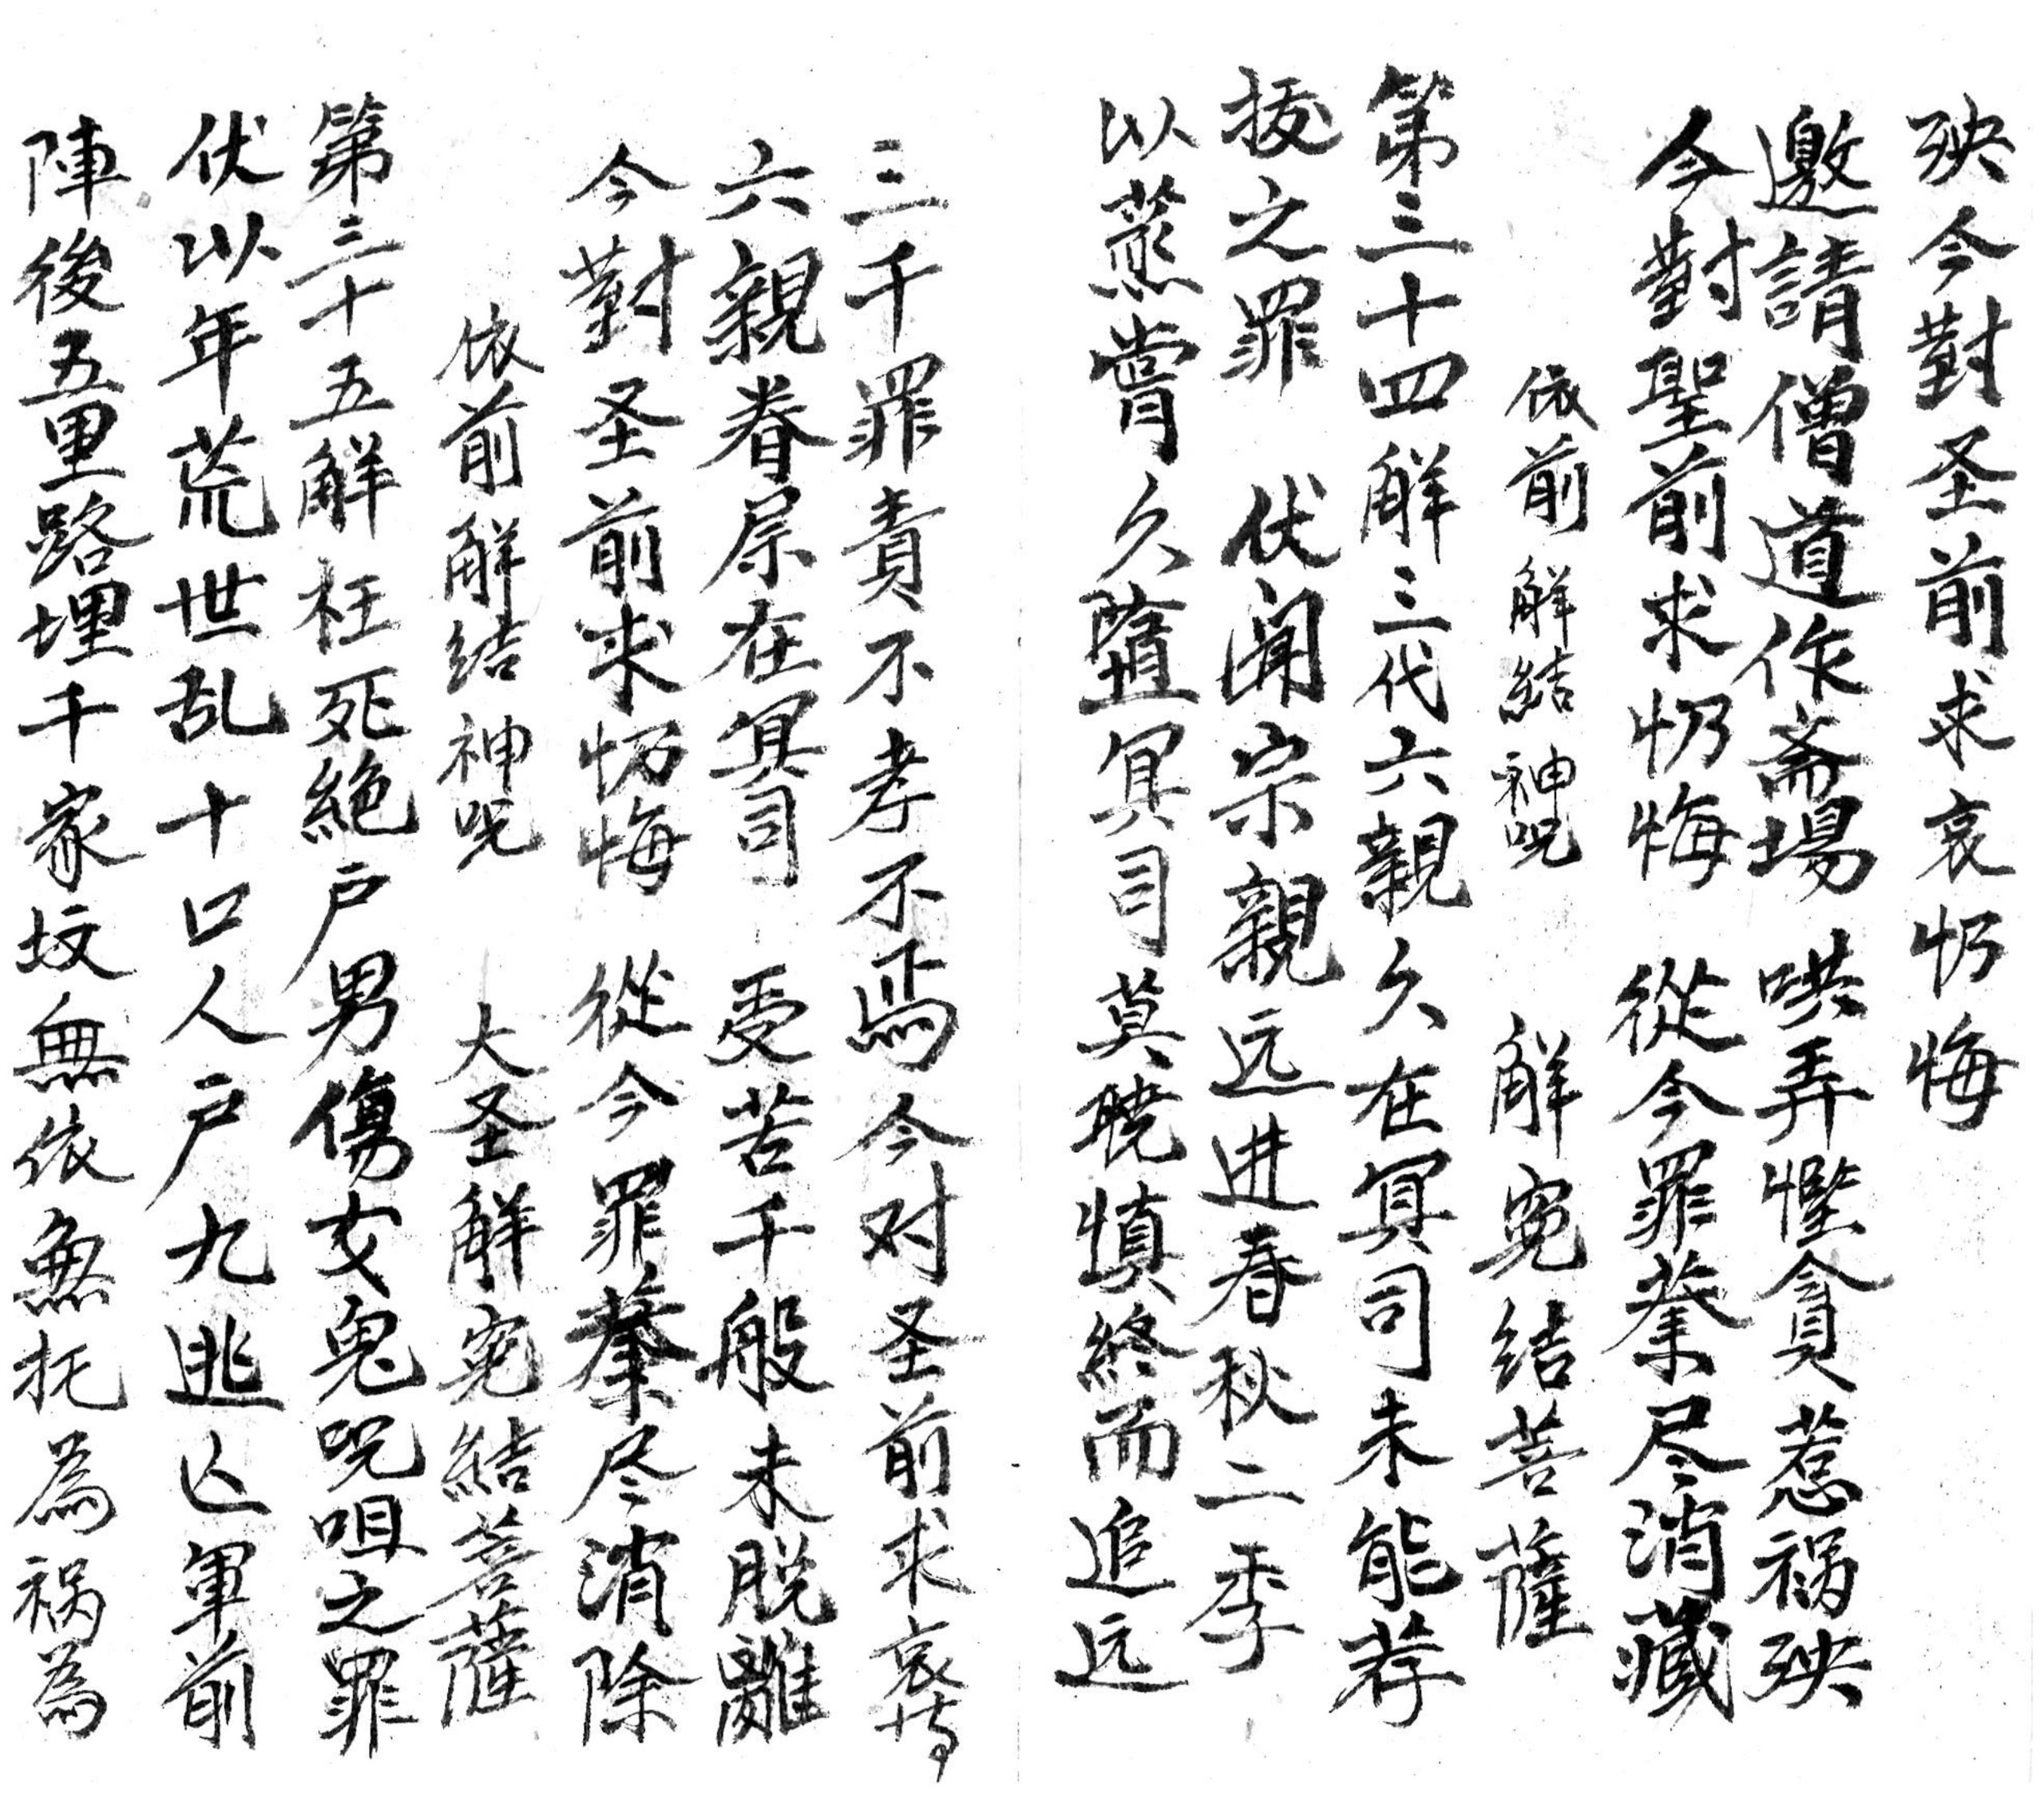 殃今對圣前求哀忉悔
邀請僧道作斋場 哄弄慳貪惹祸殃
今對聖前求忉悔 從今罪業尽消藏
依前解結神呪 解寃结菩薩
第三十四解三代六親久在冥司未能荐
拔之罪 伏闻宗親远进春秋二季
以蒸嘗久墮冥司莫曉慎終而追远
三千罪責不孝不焉今对圣前求哀
六親眷属在冥司 受苦千般未脱離
今對圣前求忉悔 從今罪業尽消除
依前解结神呪 大圣解寃結菩薩
第三十五解枉死絶户男傷女鬼呪咀之罪
伏以年荒世乱十口人户九逃亡軍前
陣後五里路埋千家坟無依無托為祸為